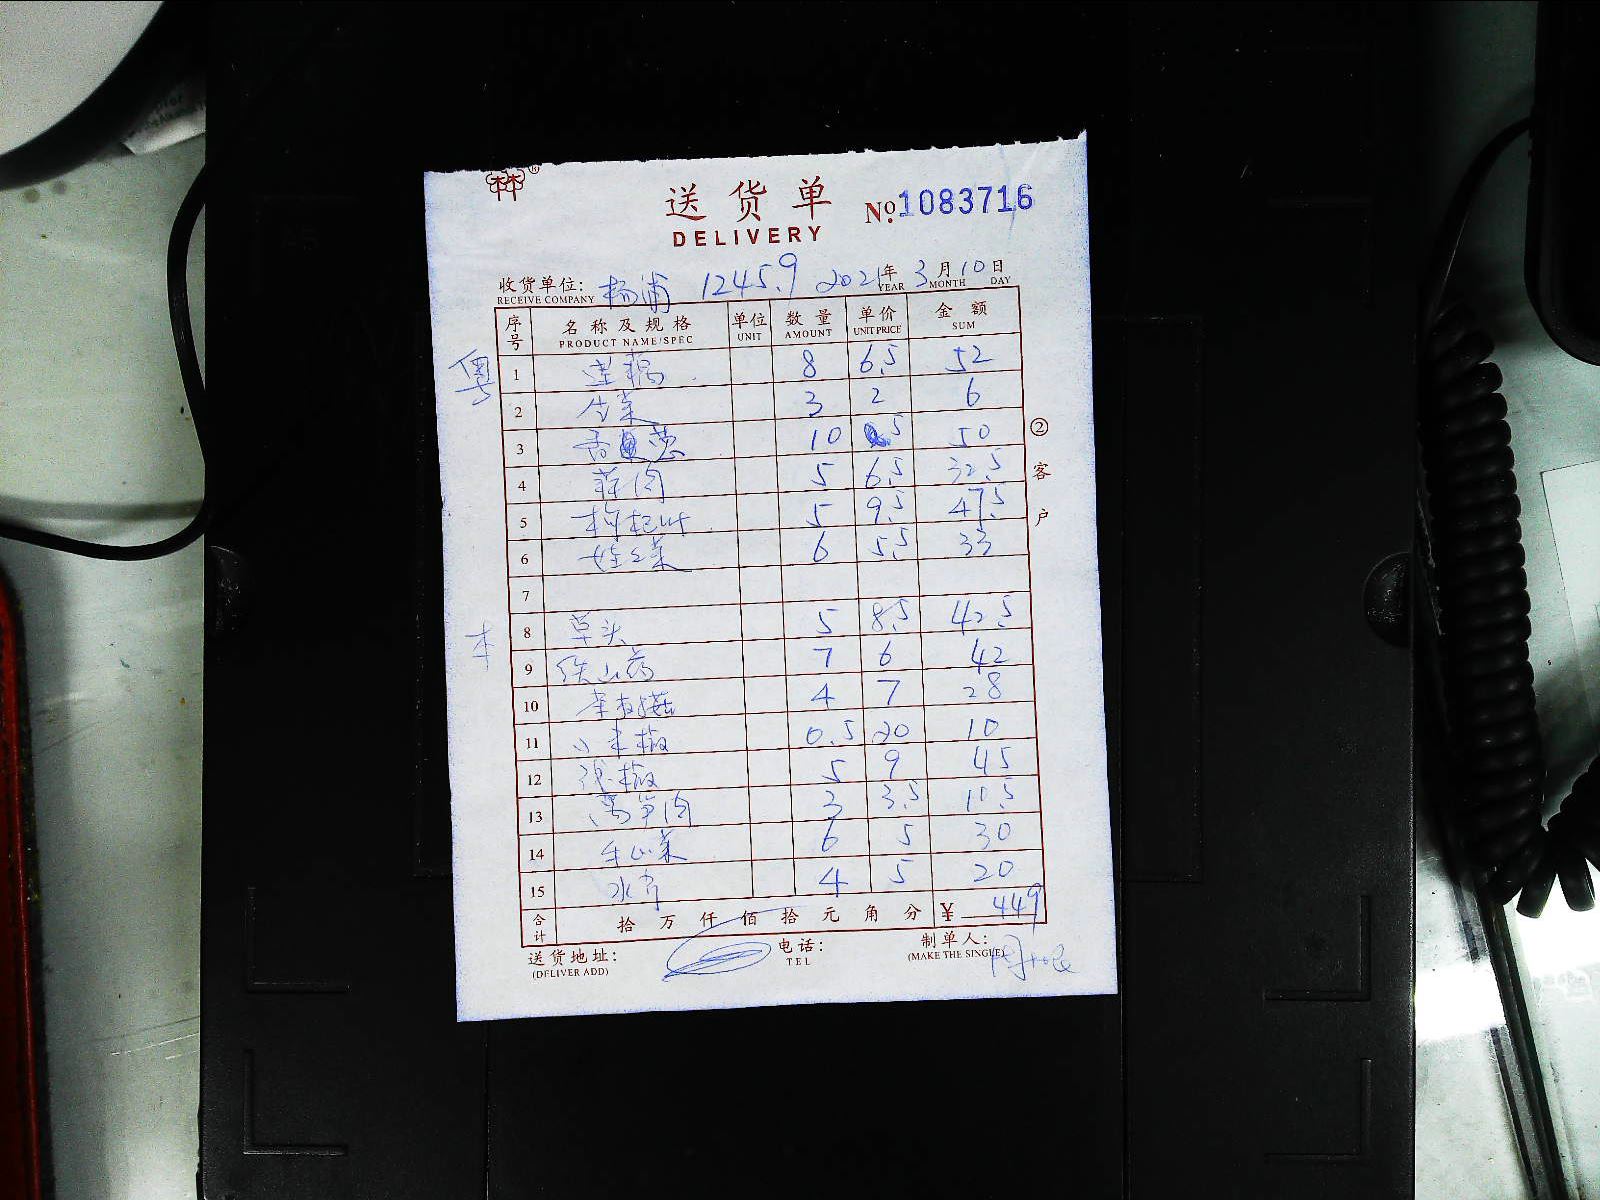 林 ®
送货单 No. 1083716
DELIVERY
收货单位: 杨浦 1245.9 2021年 3月 10日
RECEIVE COMPANY YEAR MONTH DAY
序号 名称及规格 单位 数量 单价 金额
PRODUCT NAME/SPEC UNIT AMOUNT UNIT PRICE SUM
粤 1 莲藕 8 6.5 52
2 生菜 3 2 6
3 10 5 50
4 5 6.5 32.5
5 枸杞叶 5 9.5 47.5
6 娃娃菜 6 5.5 33
7
本 8 草头 5 8.5 42.5
9 铁山药 7 6 42
10 4 7 28
11 小米椒 0.5 20 10
12 5 9 45
13 莴笋肉 3 3.5 10.5
14 6 5 30
15 水芹 4 5 20
合计 拾 万 仟 佰 拾 元 角 分 ¥ 449
送货地址: 电话: 制单人:
(DELIVER ADD) TEL (MAKE THE SINGLE)
② 客户